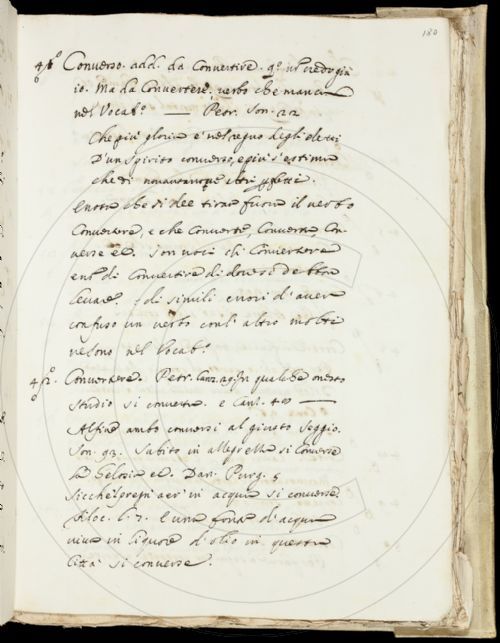 180
Converso. add. da Convertire. q.º nol credo già
io. Ma da Convertere, verbo che manca
nel Vocab.º — Petr. Son. 22
Che più gloria è nel regno degli eletti
D'un spirito converso, e più s'estima
che di novantanove altri perfetti.
Convertere, e che Converte, Converta, Con-
verse ec. son voci di Convertere
e non di Convertire di dove si debbon
levare. e di simili errori d'aver
confuso un verbo coll'altro molti
ve sono nel Vocab.º
Convertere. Petr. Canz. qualche onesto
studio si converta. e Canz. 48 —
Alfine ambo conversi al giusto seggio.
Son. 93. Subito in allegrezza si converse
La Gelosia ec. Dan. Purg. 5
Sicche'l pregno aer in acqua si converse.
l. 7. E una fonte d'acqua
viva in liquore d'olio in questa
Città si converse.